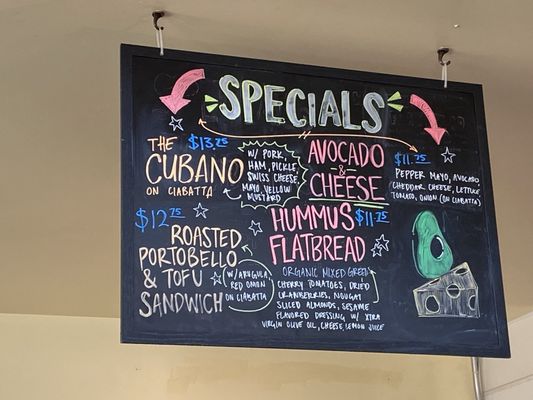 SPECIALS
THE $13.25
CUBANO
ON CIABATTA
W/ PORK,
HAM, PICKLE,
SWISS CHEESE,
MAYO, YELLOW
MUSTARD
AVOCADO
&
CHEESE
$11.75
PEPPER MAYO, AVOCADO
CHEDDAR CHEESE, LETTUCE
TOMATO, ONION (ON CIABATTA)
$12.75
ROASTED
PORTOBELLO
& TOFU
SANDWICH
W/ ARUGULA,
RED ONION
ON CIABATTA
HUMMUS $11.75
FLATBREAD
ORGANIC MIXED GREEN
CHERRY TOMATOES, DRIED
CRANBERRIES, NOUGAT
SLICED ALMONDS, SESAME
FLAVORED DRESSING W/ XTRA
VIRGIN OLIVE OIL, CHEESE, LEMON JUICE